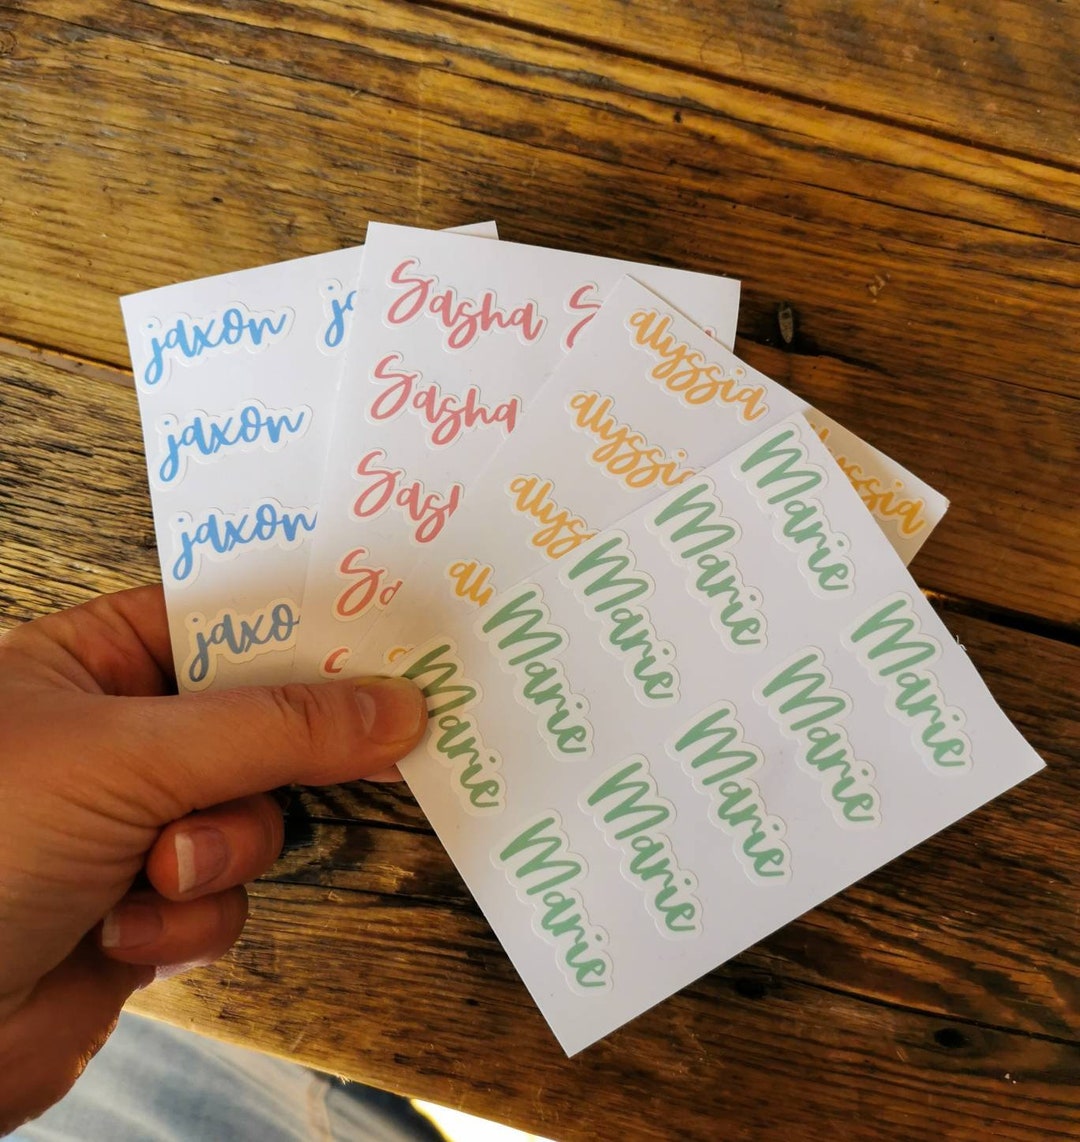 jaxon
ja
jaxon
jaxon
jaxo
Sasha
S
Sasha
Sash
Sa
alyssia
alyssia
alyss
aly
lyssia
Marie
Marie
Marie
Marie
Marie
Marie
Marie
Marie
Marie
Marie